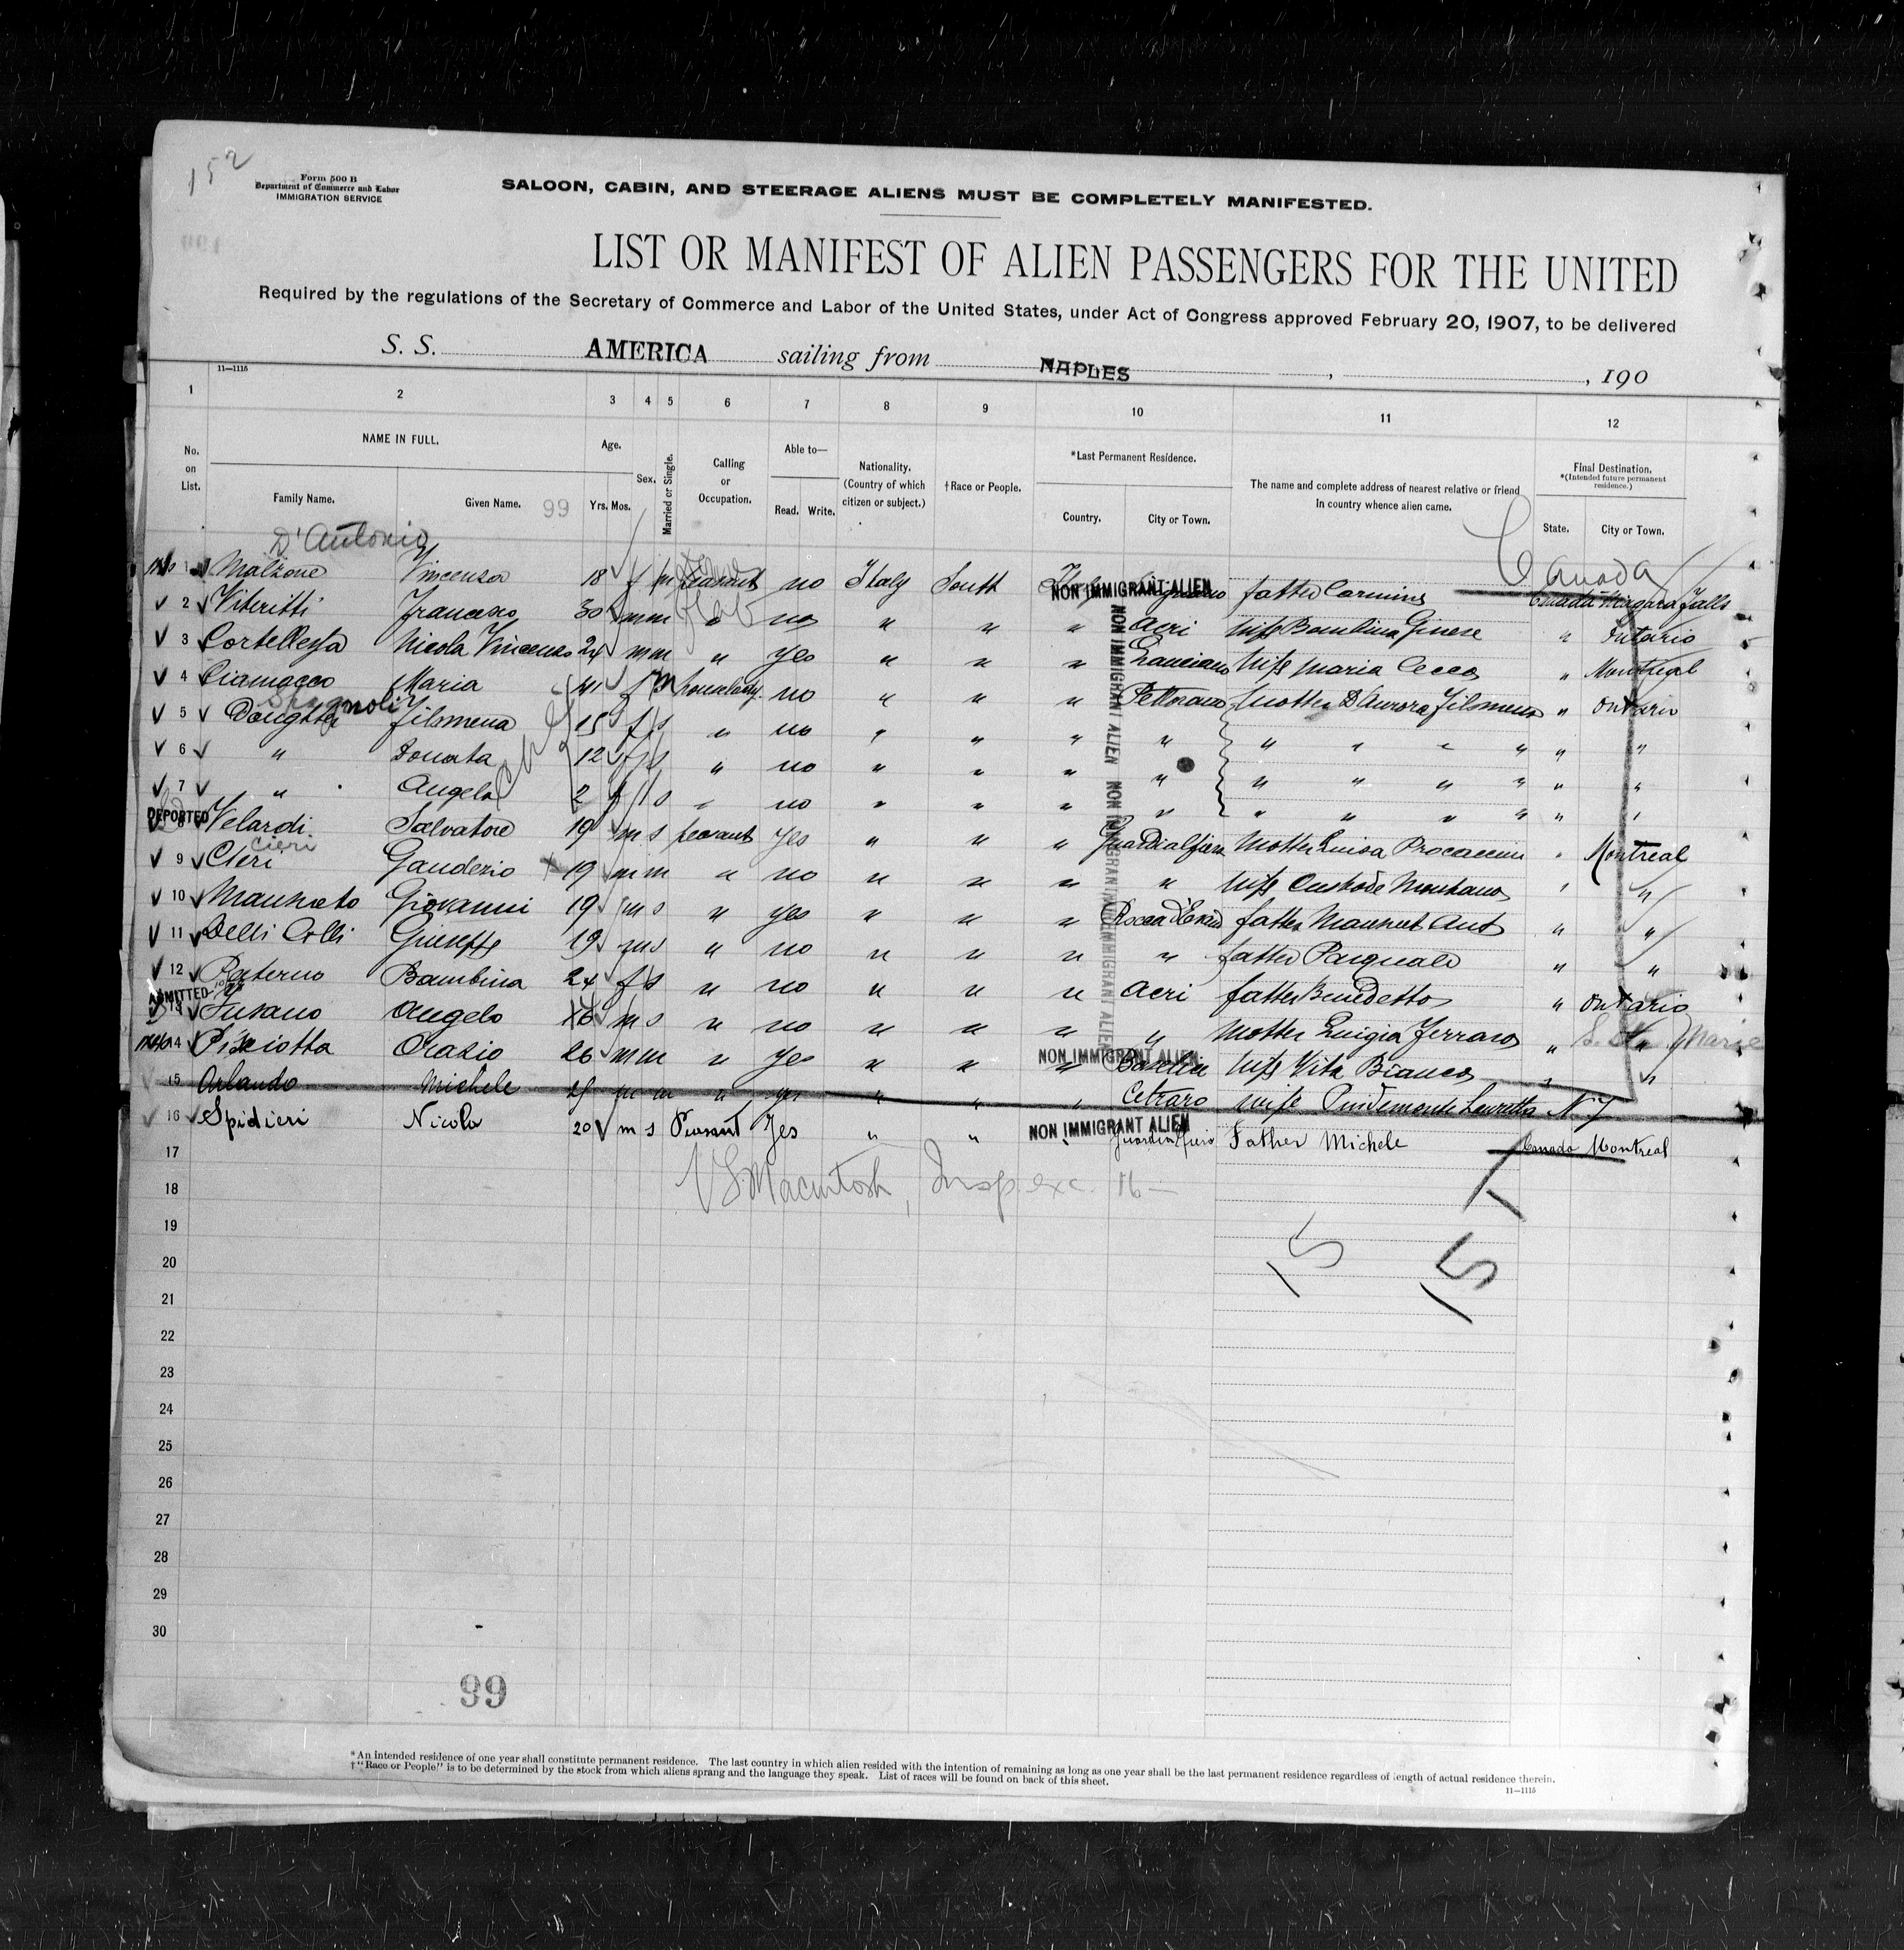 152
Form 500 B
Department of Commerce and Labor
IMMIGRATION SERVICE
SALOON, CABIN, AND STEERAGE ALIENS MUST BE COMPLETELY MANIFESTED.
LIST OR MANIFEST OF ALIEN PASSENGERS FOR THE UNITED
Required by the regulations of the Secretary of Commerce and Labor of the United States, under Act of Congress approved February 20, 1907, to be delivered
S. S. AMERICA sailing from NAPLES , , 190
11—1115
1 2 3 4 5 6 7 8 9 10 11 12
No. on List.
NAME IN FULL.
Family Name. Given Name. 99
Age.
Yrs. Mos.
Sex.
Married or Single.
Calling or Occupation.
Able to—
Read. Write.
Nationality. (Country of which citizen or subject.)
†Race or People.
*Last Permanent Residence.
Country. City or Town.
The name and complete address of nearest relative or friend in country whence alien came.
Final Destination.
*(Intended future permanent residence.)
State. City or Town.
D'Antonio
Canada
1 Malzone Vincenza 18 f m peasant no Italy South Italy NON IMMIGRANT ALIEN father Carmine Canada Niagara Falls
2 Viteritti Francesco 30 m m " no " " " Acri wife Bambina Ginese " Ontario
3 Cortellessa Nicola Vincenzo 24 m m " yes " " " Lanciano wife Maria Cecco " Montreal
4 Ciamacco Maria 41 f m no " " " Pettorano mother D'Aurora Filomena " Ontario
5 Daughter Filomena 15 f s " no " " " " " " " " " "
6 " Donata 12 f s " no " " " " " " " " " "
7 " Angela 2 f s " no " " " " " " " " " "
DEPORTED
8 Velardi Salvatore 19 m s peasant yes " " " mother Luisa Procaccini " Montreal
Cieri
9 Cleri Gauderio 19 m m " no " " " " wife " "
10 Giovanni 19 m s " yes " " " Rocca d'Evan father Ant " "
11 Delli Colli Giuseppe 19 m s " no " " " " father Pasquale " "
12 Paterno Bambina 24 f s " no " " " Acri father Benedetto " Ontario
ADMITTED
13 Fusaro Angelo 16 m s " no " " " " mother Luigia Ferraro " S. Marie
14 Pisciotta Orazio 26 m m " yes " " " NON IMMIGRANT ALIEN wife Vita Bianco " "
15 Orlando Michele m m " yes " " " Cetraro wife Lauretta N Y
16 Spidieri Nicola 20 m s Peasant Yes " " " NON IMMIGRANT ALIEN Father Michele Canada Montreal
NON IMMIGRANT ALIEN NON IMMIGRANT ALIEN
17 Macintosh, Insp exc. 16—
18
19
20 15 15
21
22
23
24
25
26
27
28
29
30
99
*An intended residence of one year shall constitute permanent residence. The last country in which alien resided with the intention of remaining as long as one year shall be the last permanent residence regardless of length of actual residence therein.
†"Race or People" is to be determined by the stock from which aliens sprang and the language they speak. List of races will be found on back of this sheet.
11—1115